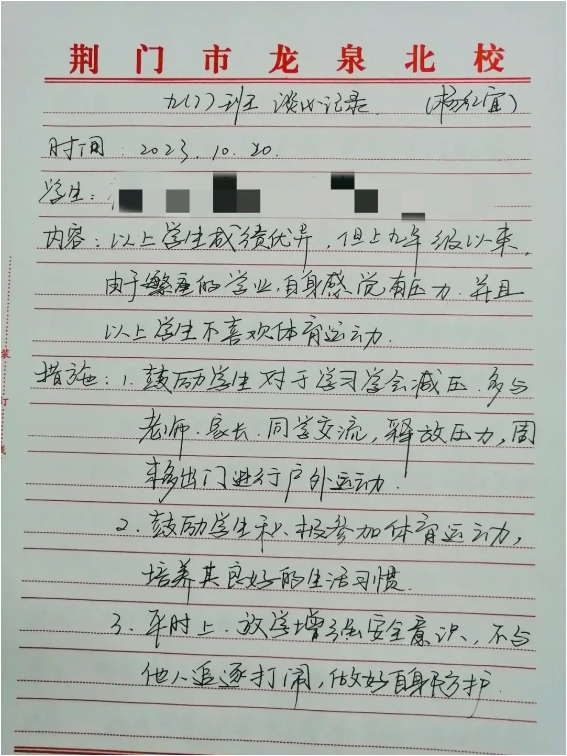 荆门市龙泉北校
九(1)班 谈心记录. (杨红宜)
时间:2023.10.20.
学生:
内容:以上学生成绩优异,但上九年级以来,
由于繁重的学业,自身感觉有压力.并且
以上学生不喜欢体育运动.
措施:1.鼓励学生对于学习学会减压.多与
老师.家长.同学交流,释放压力,周
末多出门进行户外运动.
2.鼓励学生积极参加体育运动,
培养其良好的生活习惯.
3.平时上.放学增强安全意识,不与
他人追逐打闹,做好自身防护.
装
订
线